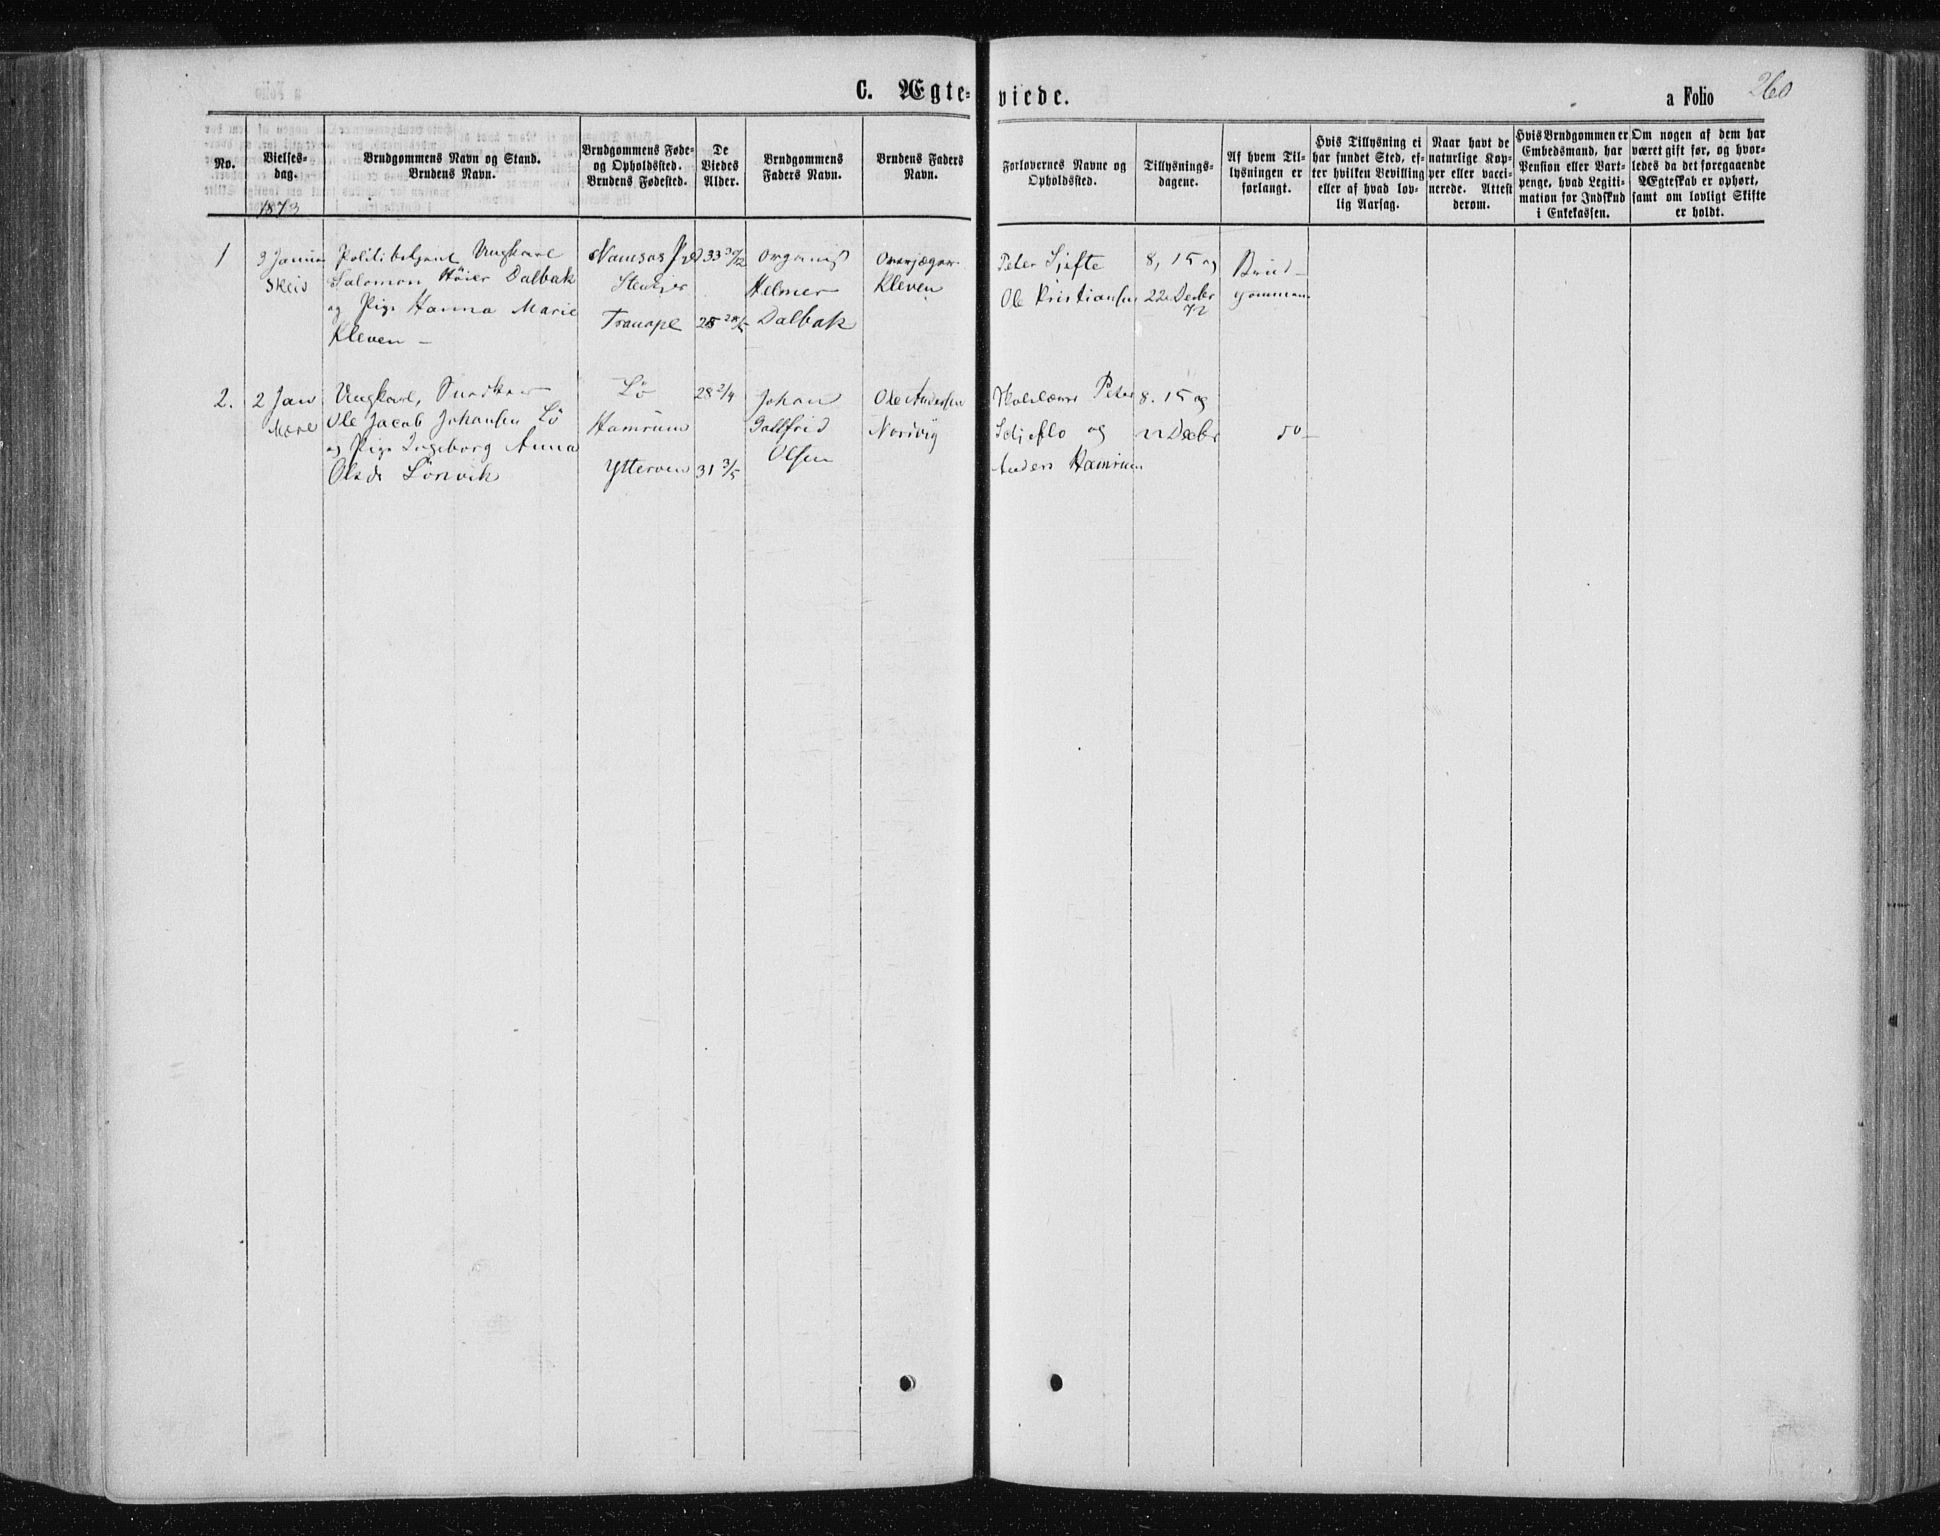 C. Ægte-
viede.
a Folio 260
No.
Vielses-
dag.
Brudgommens Navn og Stand.
Brudens Navn.
Brudgommens Føde-
og Opholdssted.
Brudens Fødested.
De
Viedes
Alder.
Brudgommens
Faders Navn.
Brudens Faders
Navn.
Forlovernes Navne og
Opholdssted.
Tillysnings-
dagene.
Af hvem Til-
lysningen er
forlangt.
Hvis Tillysning ei
har fundet Sted, ef-
ter hvilken Bevilling
eller af hvad lov-
lig Aarsag.
Naar havt de
naturlige Kop-
per eller vacci-
nerede. Attest
derom.
Hvis Brudgommen er
Embedsmand, har
Pension eller Vart-
penge, hvad Legiti-
mation for Indskud
i Enkekassen.
Om nogen af dem har
været gift før, og hvor-
ledes da det foregaaende
Ægteskab er ophørt,
samt om lovligt Skifte
er holdt.
1873
1
Skeis
Politibetjent Ungkarl
Salomon Höier Dalbak
og Pige Hanna Marie
Kleven -
Namsos
Tranape
33
25
Organist
Helmer
Dalbak
Kleven
Peter
Ole Kristiansen
8, 15 og
22 Decbr
72
Brud-
gommen
2.
2 Jan
Mære
Ungkarl,
Ole Jacob Johansen Lö
og Pige Ingeborg Anna
Olsdr
Lö
Hamrum
Ytterøen
28 2/4
31 3/5
Johan
Olsen
Ole Andersen
Norvig
Peter
og
Anders Hamrum
8. 15 og
22 Decbr